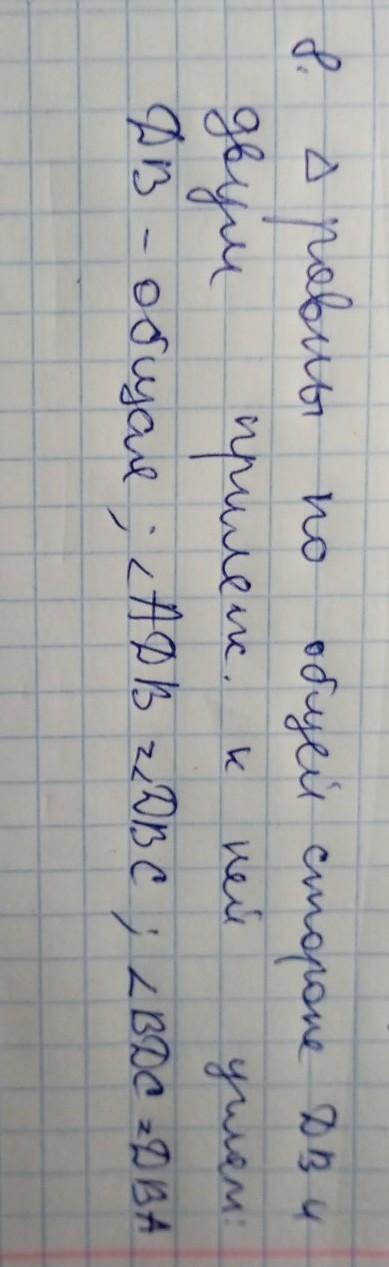 8. Δ равны по общей стороне DB и
двум прилеж. к ней углам:
DB - общая; <ADB = <DBC; <BDC = DBA